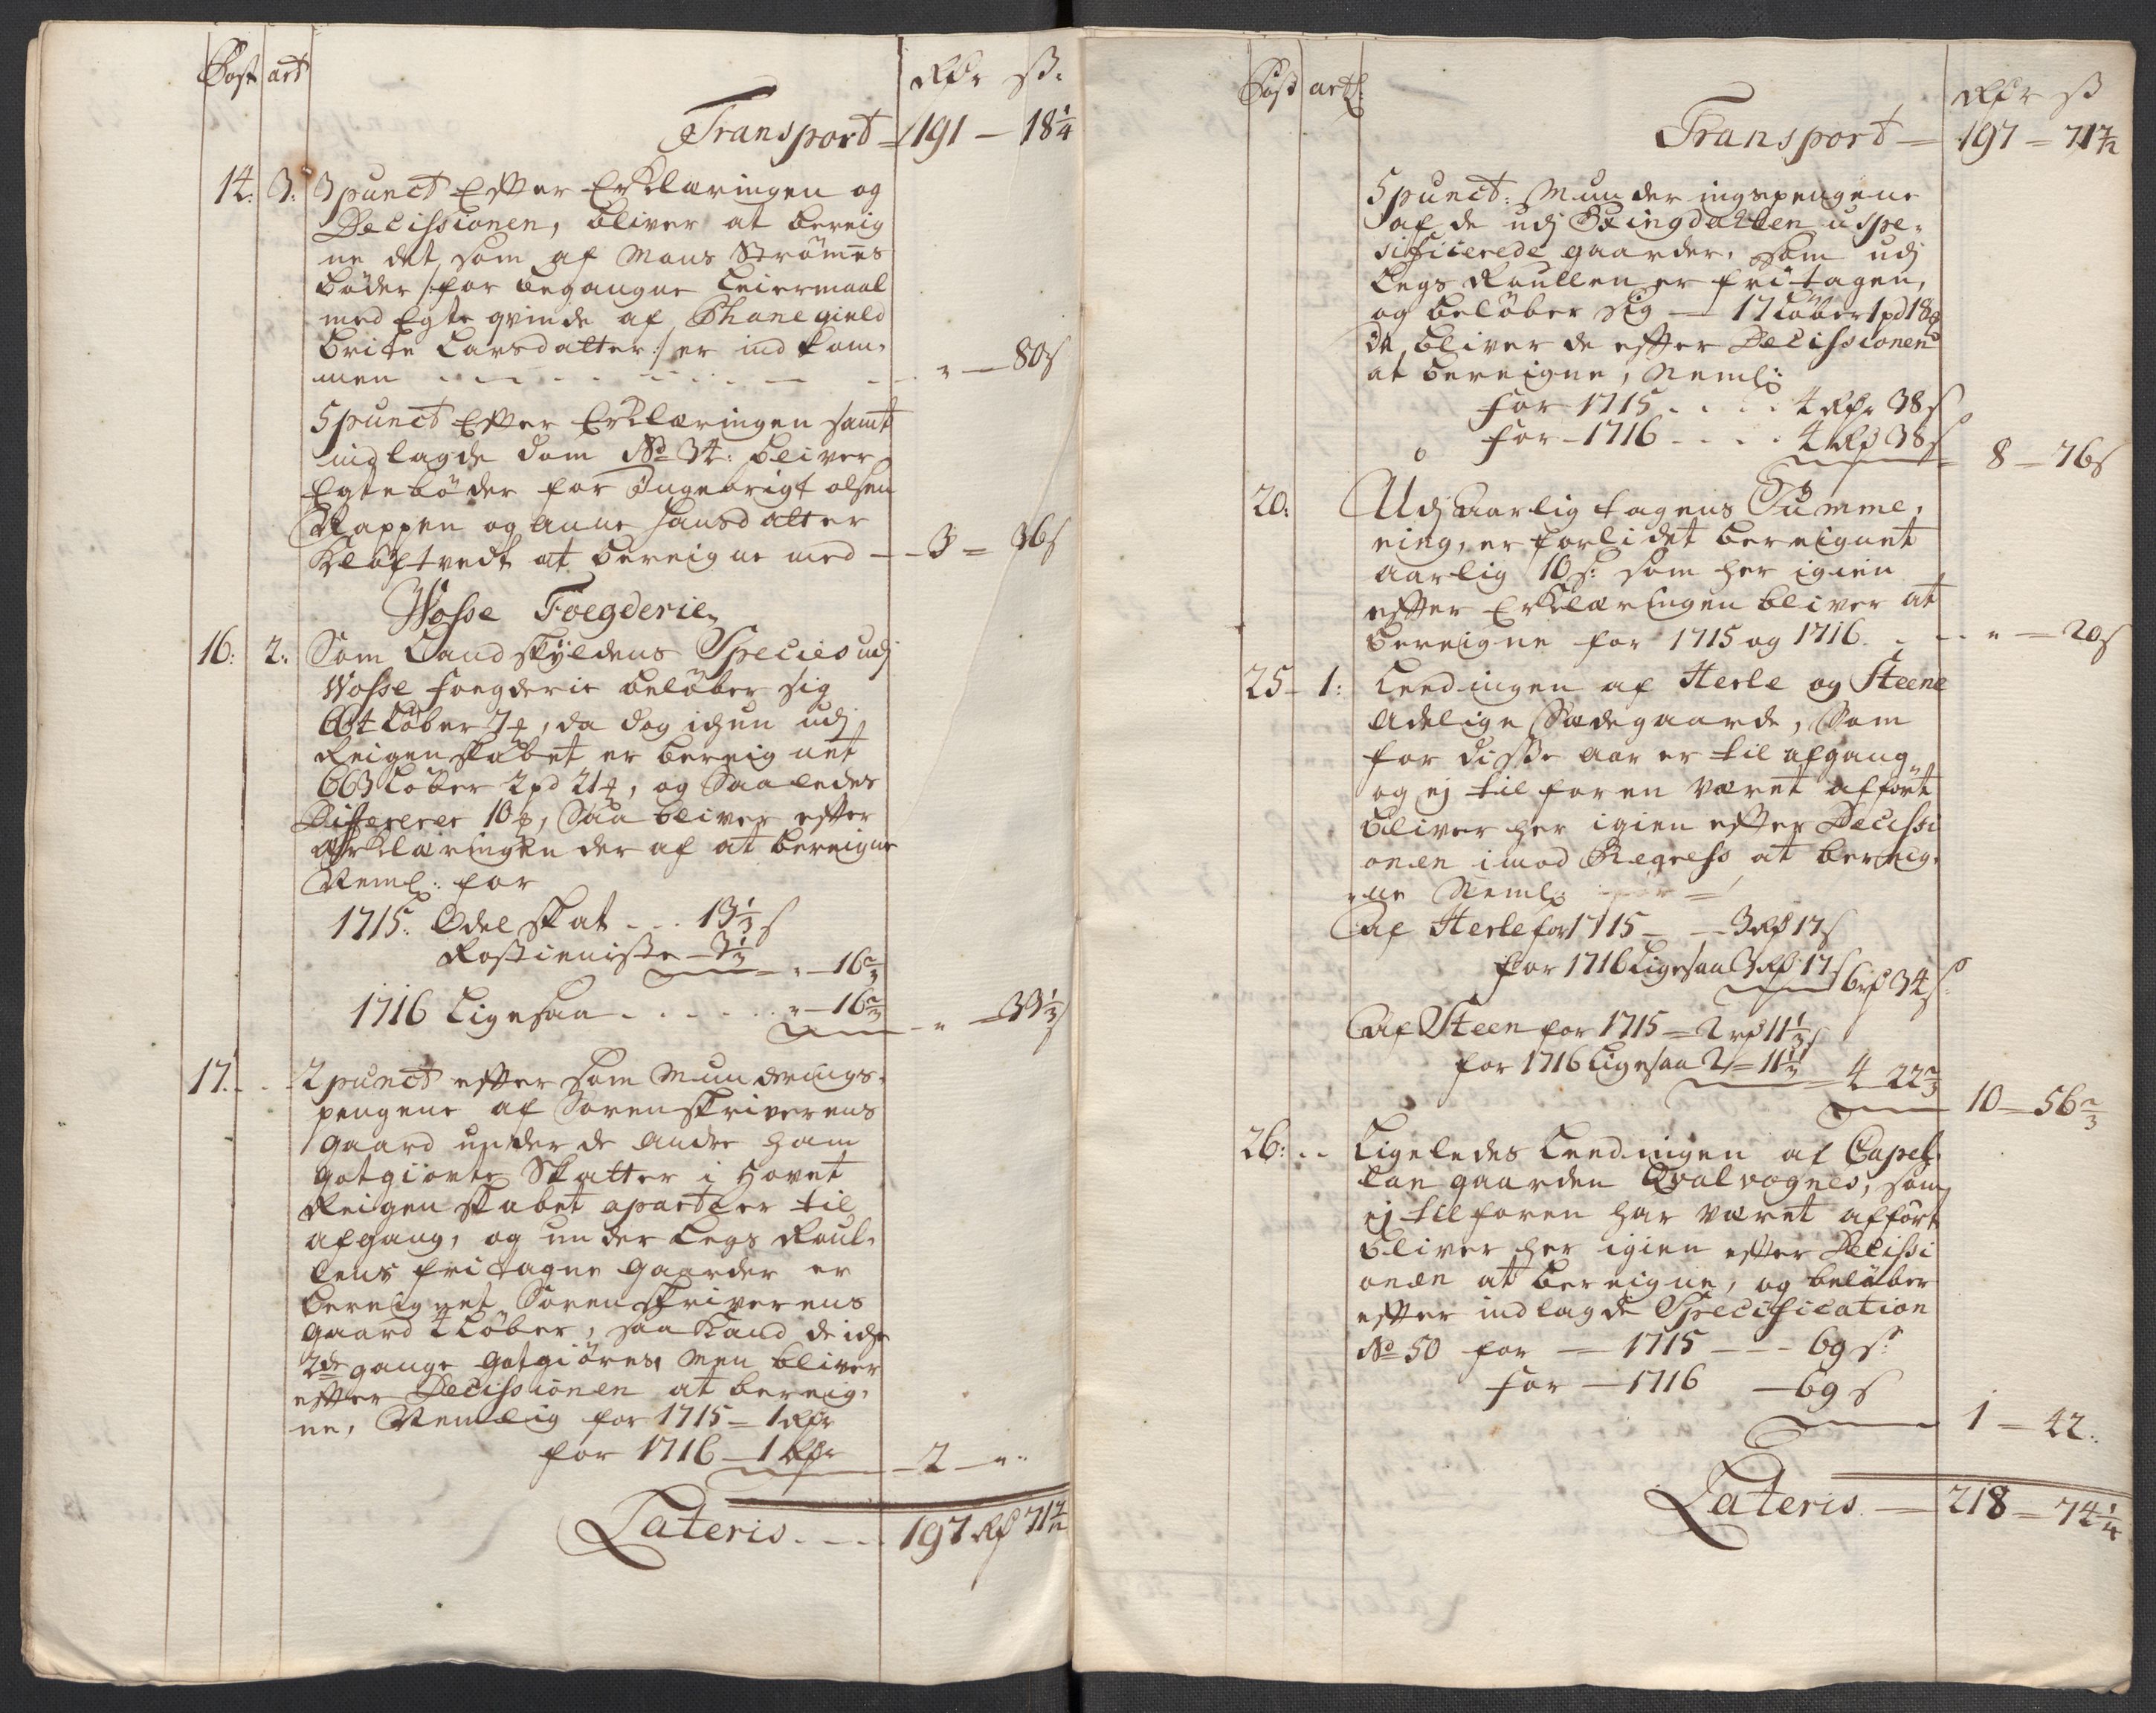 Post art
Rdr ß.
Transport = 191 — 18 1/4
14. 3: 3 punct Efter Erklæringen og
Decissionen, bliver at bereig
ne det, som af Mons Strömes
böder /: for begangne Leiermaal
med Egte qvinde af Phanegield
Brite Larsdatter :/ er ind kom-
men . . . . " — 80 s
5 punct Efter Erklæringen samt
indlagde dom No 34: bliver
Egtebøder for Ingebrigt olsen
Rappen og Anne Hansdatter
Kløftvedt at bereigne med — 3 = 36 s
Wosse Foegderie
16: 2: Som Landskyldens Species udj
Wosse foegderie beløber sig
664 Løber 7 ₰, da dog ichun udj
Reigenskabet er bereignet
663 Løber 2 pd 21 ₰, og Saaledes
Differerer 10 ₰, Saa bliver efter
Erklæringen der af at bereigne
Neml: for
1715: Odel skat . . . 13 1/3 s
Rostieniste — 3 1/3
" — 16 2/3
1716 Ligesaa . . . . . " — 16 2/3 " — 33 1/3 s
17. . . 2 punct efter som Munderings-
pengene af Sorenskriverens
gaard under de andre ham
gotgiorte Skatter i Hovet
Reigenskabet apart er til
afgang, og under Legs Roul-
lens fritagne gaarder er
bereignet Sorenskriverens
gaard 4 Løber, saa kand de iche
2de gange gotgiøres, men bliver
efter Decissionen at bereig-
ne, Nemlig for 1715 — 1 Rdr
for 1716 — 1 Rdr — 2 — "
Lateris . . . 197 Rd 71 7/12
Post artl:
Rdr ß
Transport — 197 = 71 7/12
5 punct: Munderingspengene
af de udj Exingdallen uspe-
sificerede gaarder, som udj
Legs Roullen er fritagen,
og beløber sig — 17 Løber 1 pd 18 ₰
da bliver de efter Decissionen
at bereigne, Neml:
for 1715 . . . . 4 Rdr 38 s
for 1716 . . . . 4 Rd 38 s 8 — 76 s
20: Udj Aarlig tagens Summe-
ring, er forlidet bereignet
aarlig 10 s: som her igien
efter Erklæringen bliver at
bereigne for 1715 og 1716 . . " — 20 s
25 — 1: Leedingen af Herle og Steene
Adelige Sædegaarde, Som
for disse aar er til afgang
og ej tilforen været afført
bliver her igien efter Decissi
onen imod Regress at bereig-
ne Neml:
Af Herle for 1715 — 3 Rd 17 s
for 1716 Ligesaa 3 Rd 17 s 6 rd 34 s
Af Steen for 1715 = 2 rd 11 1/3 s
for 1716 Ligesaa 2 = 11 1/3 = 4 22 2/3
10 — 56 2/3
26: . . Ligeledes Leedingen af Capel-
lan gaarden Qvalvognes, som
ej tilforen har været afført
bliver her igien efter Decissi
onen at bereigne, og beløber
efter indlagde Specification
No 50 for — 1715 — — 69 s:
for — 1716 — 69 s
1 — 42.
Lateris — 218 = 74 1/4